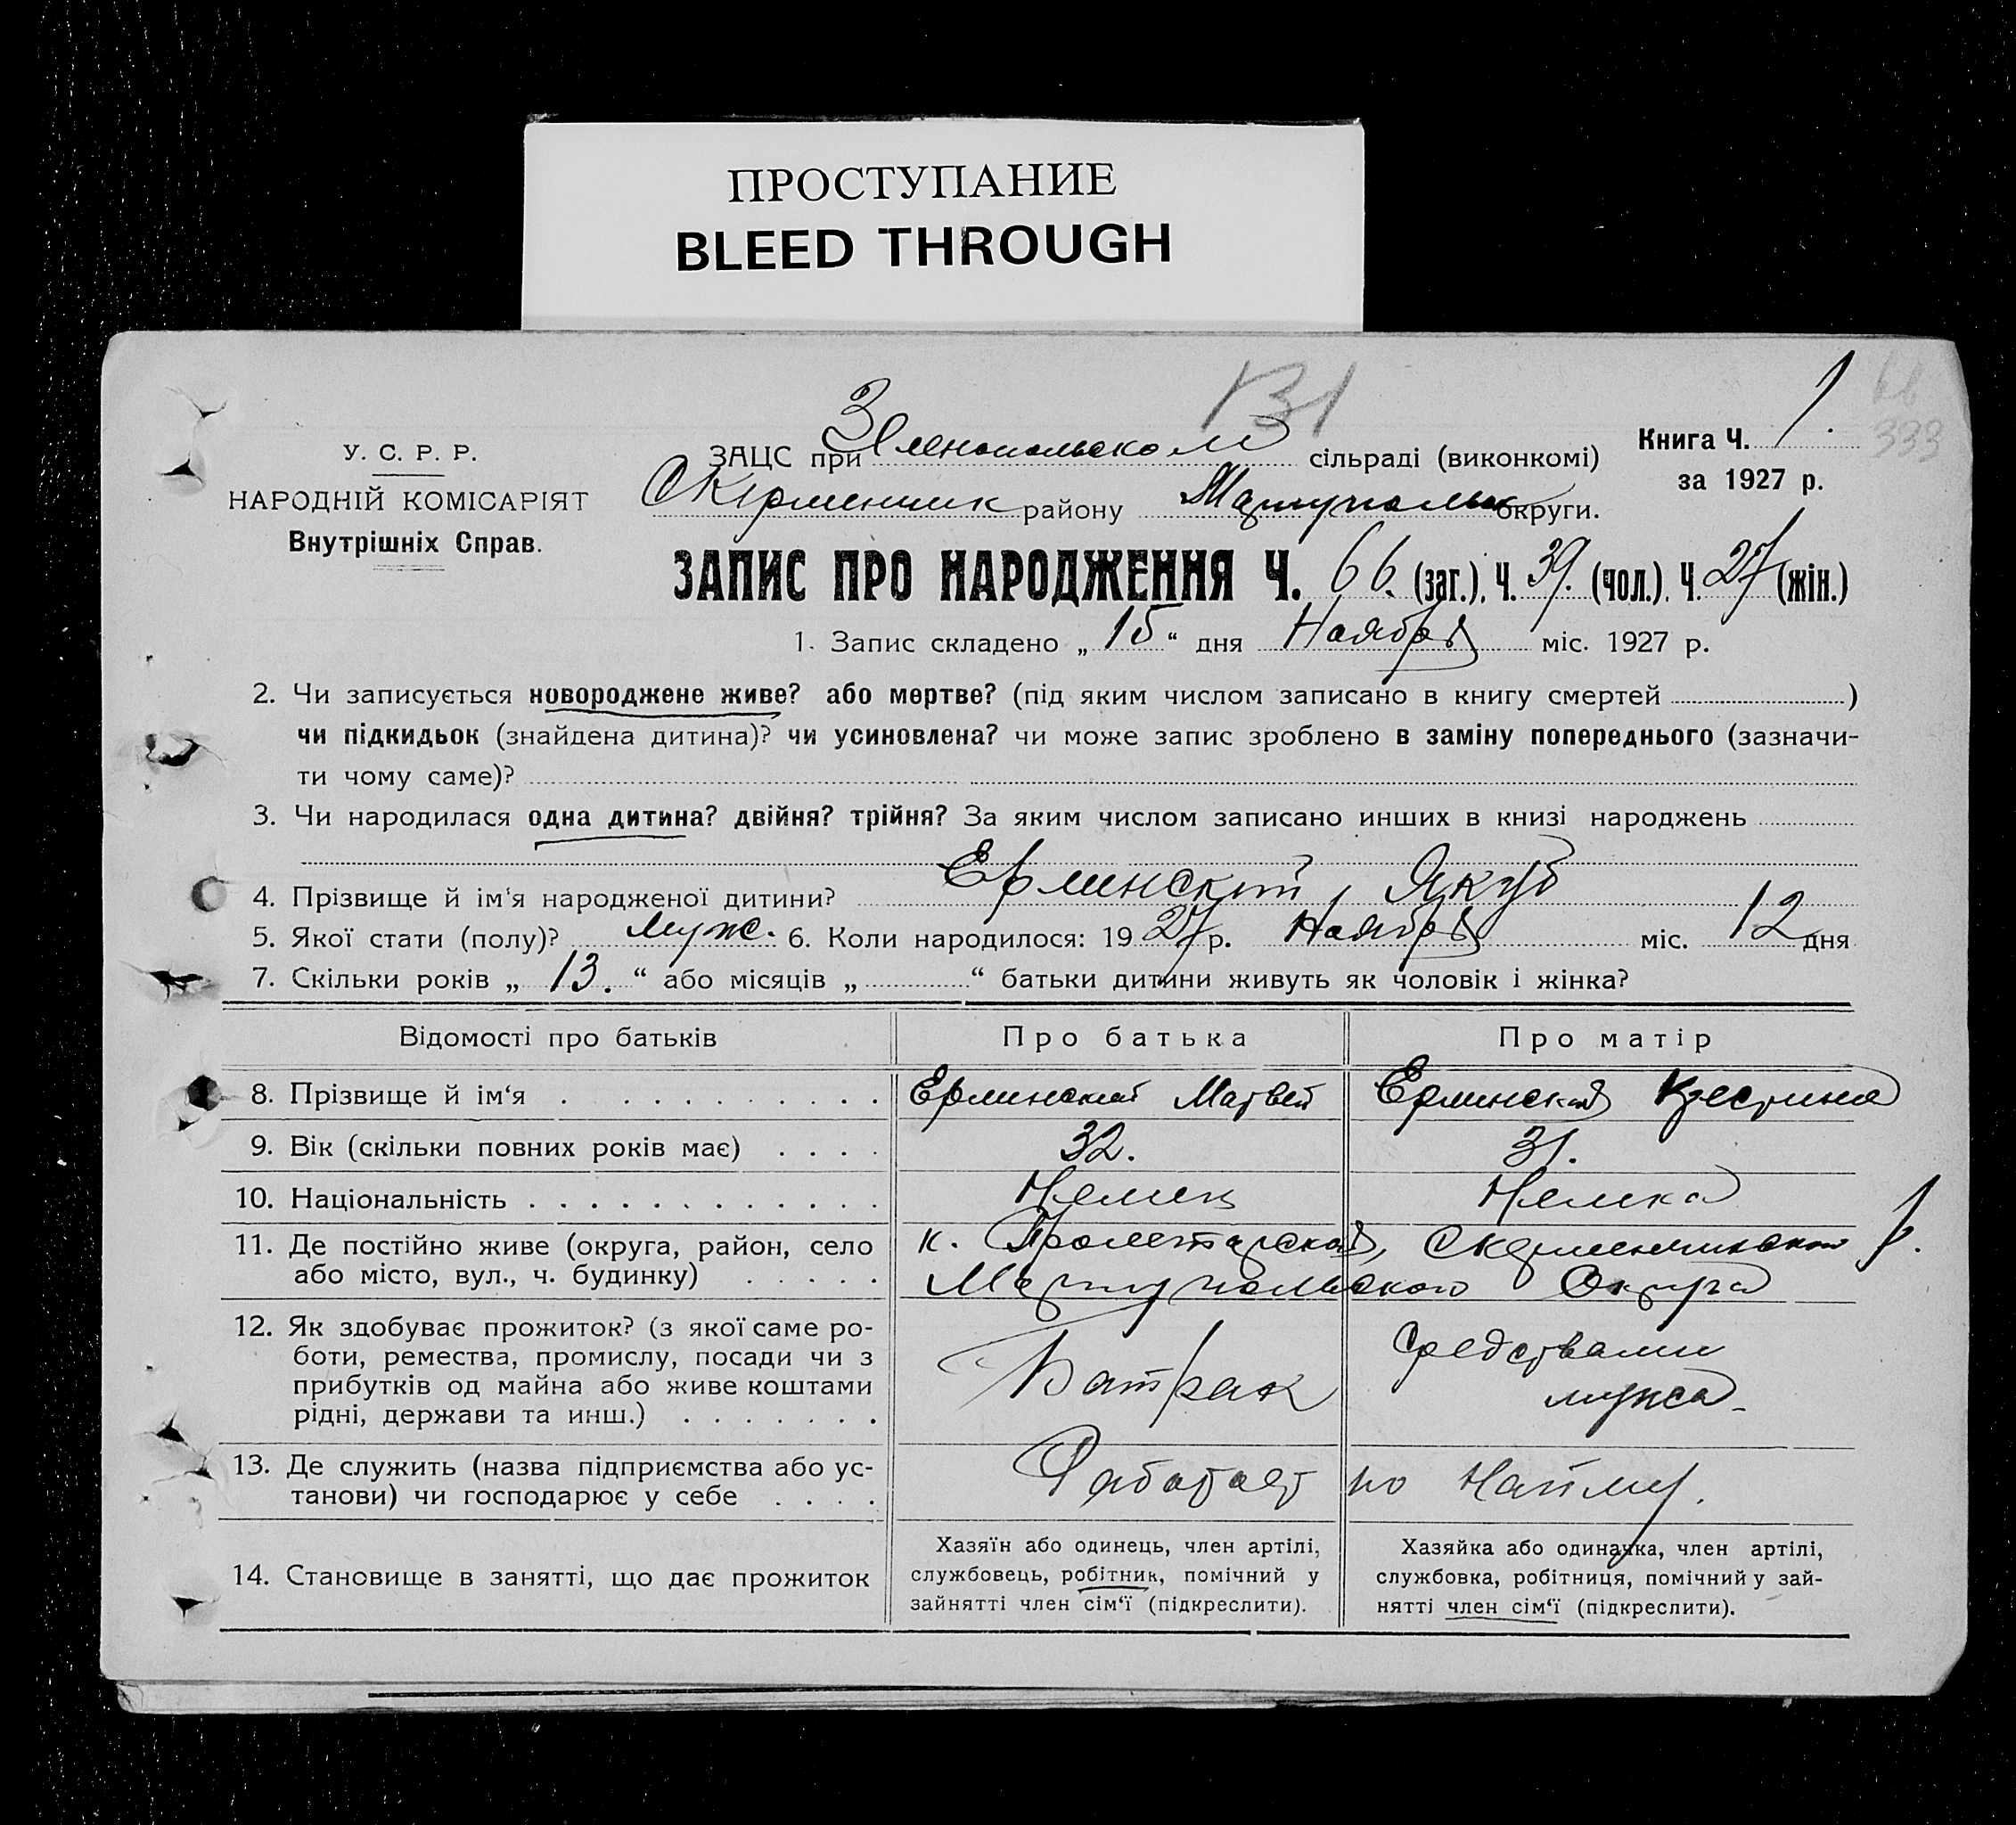 ПРОСТУПАНИЕ
BLEED THROUGH
131
333
У. С. Р. Р.
НАРОДНІЙ КОМІСАРІЯТ
Внутрішніх Справ.
ЗАЦС при Зеленопольском сільраді (виконкомі)
Книга Ч. 1.
за 1927 р.
району округи.
ЗАПИС ПРО НАРОДЖЕННЯ Ч. 66. (заг.), Ч. 39. (чол.). Ч. 27 (жін.)
1. Запис складено „ 15 “ дня Ноября міс. 1927 р.
2. Чи записується новороджене живе? або мертве? (під яким числом записано в книгу смертей )
чи підкидьок (знайдена дитина)? чи усиновлена? чи може запис зроблено в заміну попереднього (зазначи-
ти чому саме)?
3. Чи народилася одна дитина? двійня? трійня? За яким числом записано инших в книзі народжень
4. Прізвище й ім‘я народженої дитини? Ерлинский, Якуб
5. Якої стати (полу)? муж. 6. Коли народилося: 1927 р. Ноября міс. 12 дня
7. Скільки років „ 13. “ або місяців „ “ батьки дитини живуть як чоловік і жінка?
Відомості про батьків Про батька Про матір
8. Прізвище й ім‘я Ерлинский Матвей Ерлинская
9. Вік (скільки повних років має) 32. 31.
10. Національність Немец Немка
11. Де постійно живе (округа, район, село к. Пролетарская, р.
або місто, вул., ч. будинку) Мариупольского Округа
12. Як здобуває прожиток? (з якої саме ро-
боти, ремества, промислу, посади чи з
прибутків од майна або живе коштами
рідні, держави та инш.) Батрак Средствами
мужа
13. Де служить (назва підприємства або ус-
танови) чи господарює у себе Работает по Найму.
14. Становище в занятті, що дає прожиток
Хазяїн або одинець, член артілі,
службовець, робітник, помічний у
зайнятті член сім‘ї (підкреслити).
Хазяйка або одиначка, член артілі,
службовка, робітниця, помічний у зай-
нятті член сім‘ї (підкреслити).